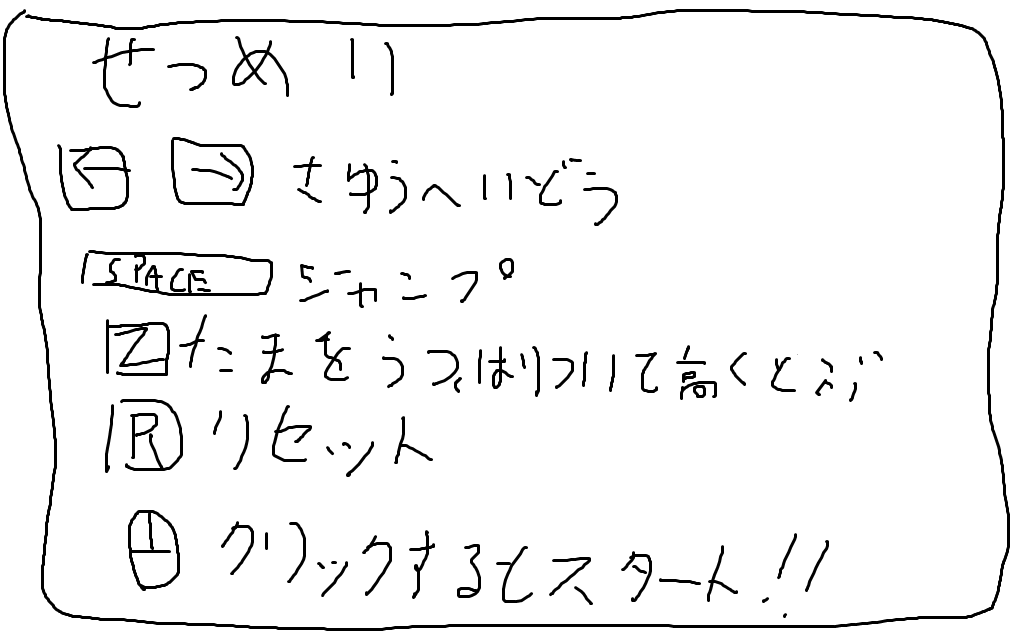 せつめい
← → さゆうへいどう
SPACE ジャンプ
Z たまをうつ、はりついて高くとぶ
R リセット
クリックするとスタート!!